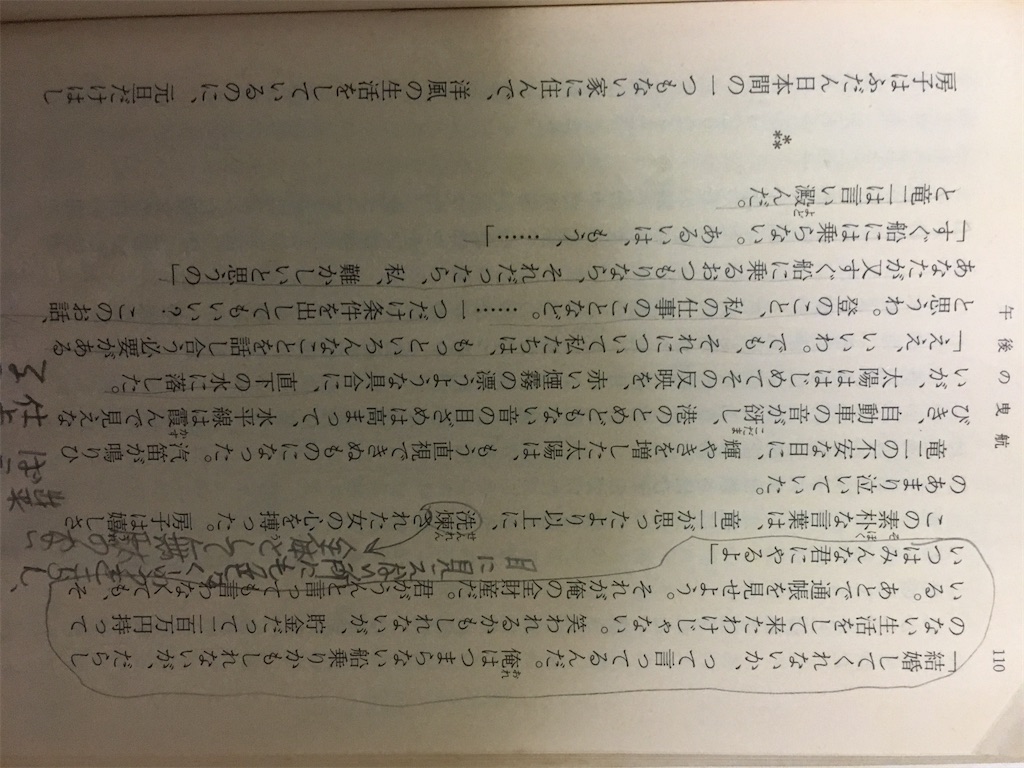 110
午後の曳航
「結婚してくれないか、って言ってるんだ。俺はつまらない船乗りかもしれないが、だらし
のない生活をして来たわけじゃない。笑われるかもしれないが、貯金だって二百万円持って
いる。あとで通帳を見せよう。それが俺の全財産だ。君がうんと言っても言わなくても、そ
いつはみんな君にやるよ」
この素朴な言葉は、竜二が思ったより以上に、洗煉された女の心を搏った。房子は嬉しさ
のあまり泣いていた。
竜二の不安な目に、輝やきを増した太陽は、もう直視できぬものになった。汽笛が鳴りひ
びき、自動車の音が谺し、港のとめどもない音のざめめは高まって、水平線は霞んで見えな
いが、太陽ははじめてその反映を、赤い煙霧の漂うような具合に、直下の水に落した。
「ええ、いいわ。でも、それについて私たちは、もっといろんなことを話し合う必要がある
と思うわ。登のこと、私の仕事のことなど。……一つだけ条件を出してもいい？このお話、
あなたが又すぐ船に乗るおつもりなら、それだったら、私、難かしいと思うの」
「すぐ船には乗らない。あるいは、もう、……」
と竜二は言い澱んだ。
**
房子はふだん日本間の一つもない家に住んで、洋風の生活をしているのに、元旦だけはし
目に見えない